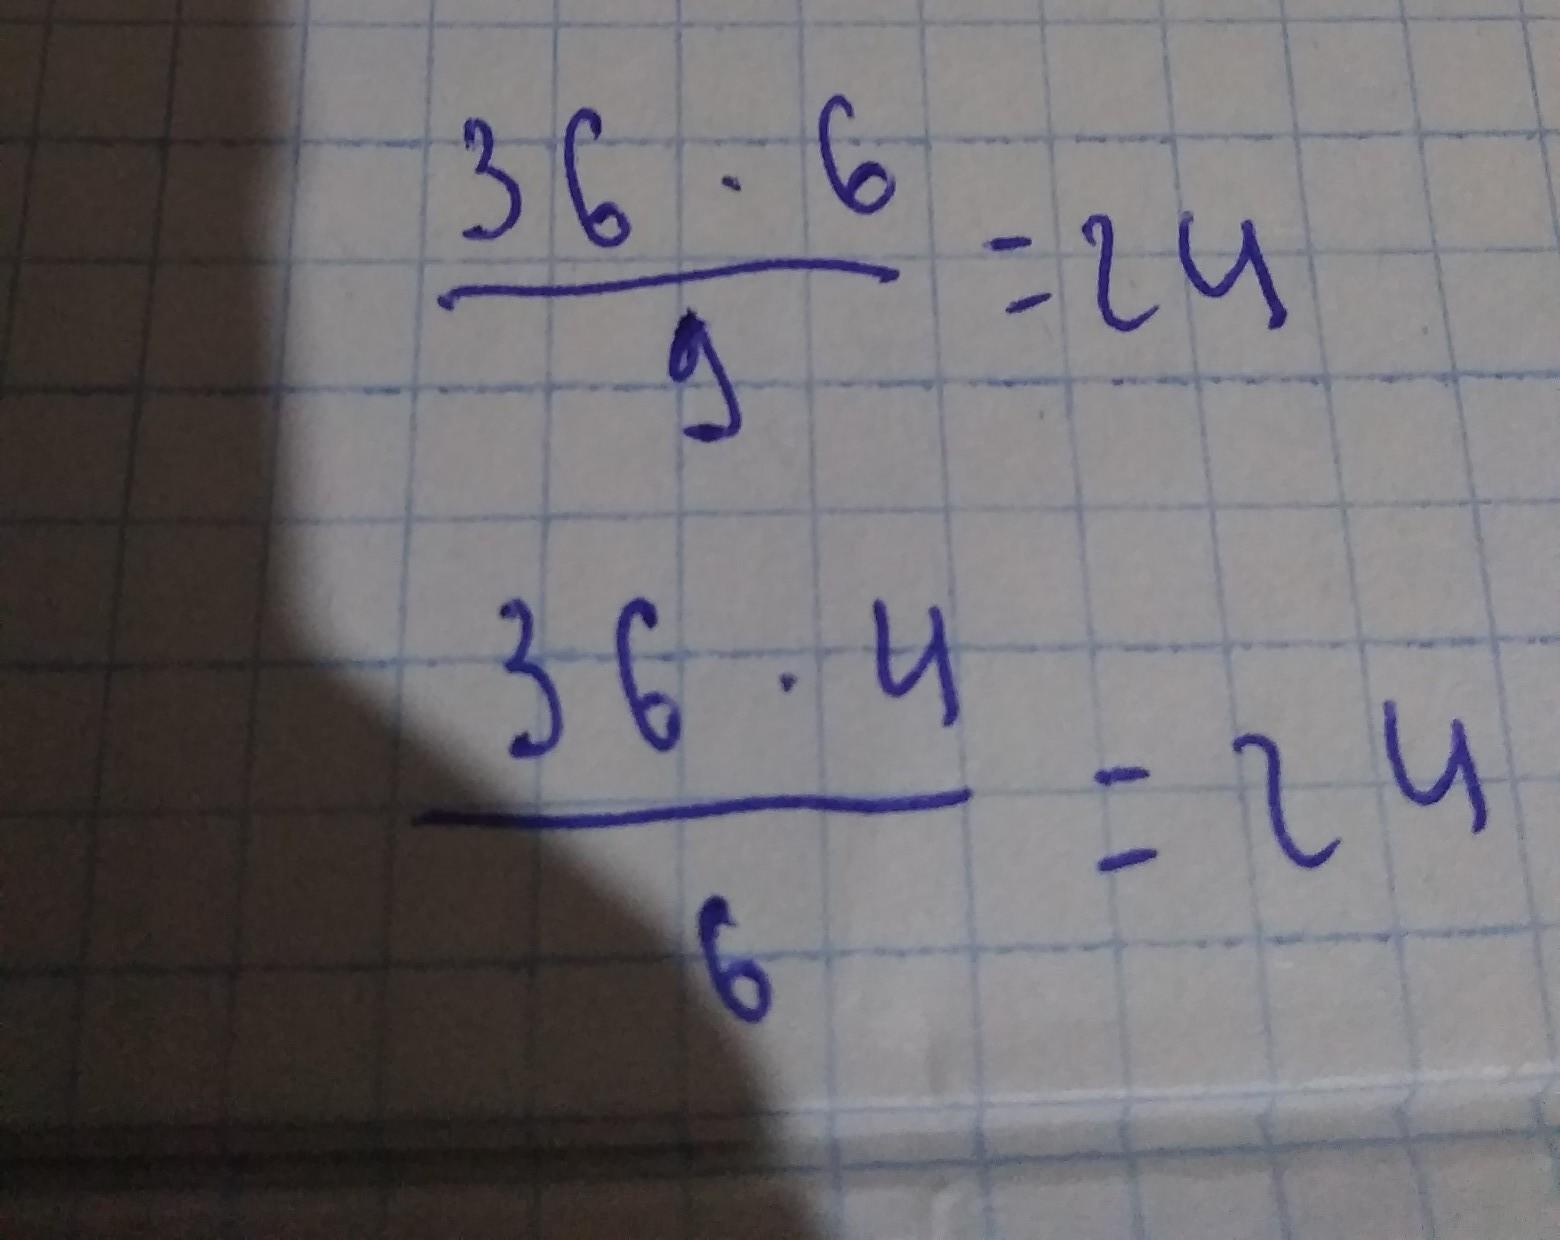 36 · 6
9
= 24
36 · 4
6
= 24